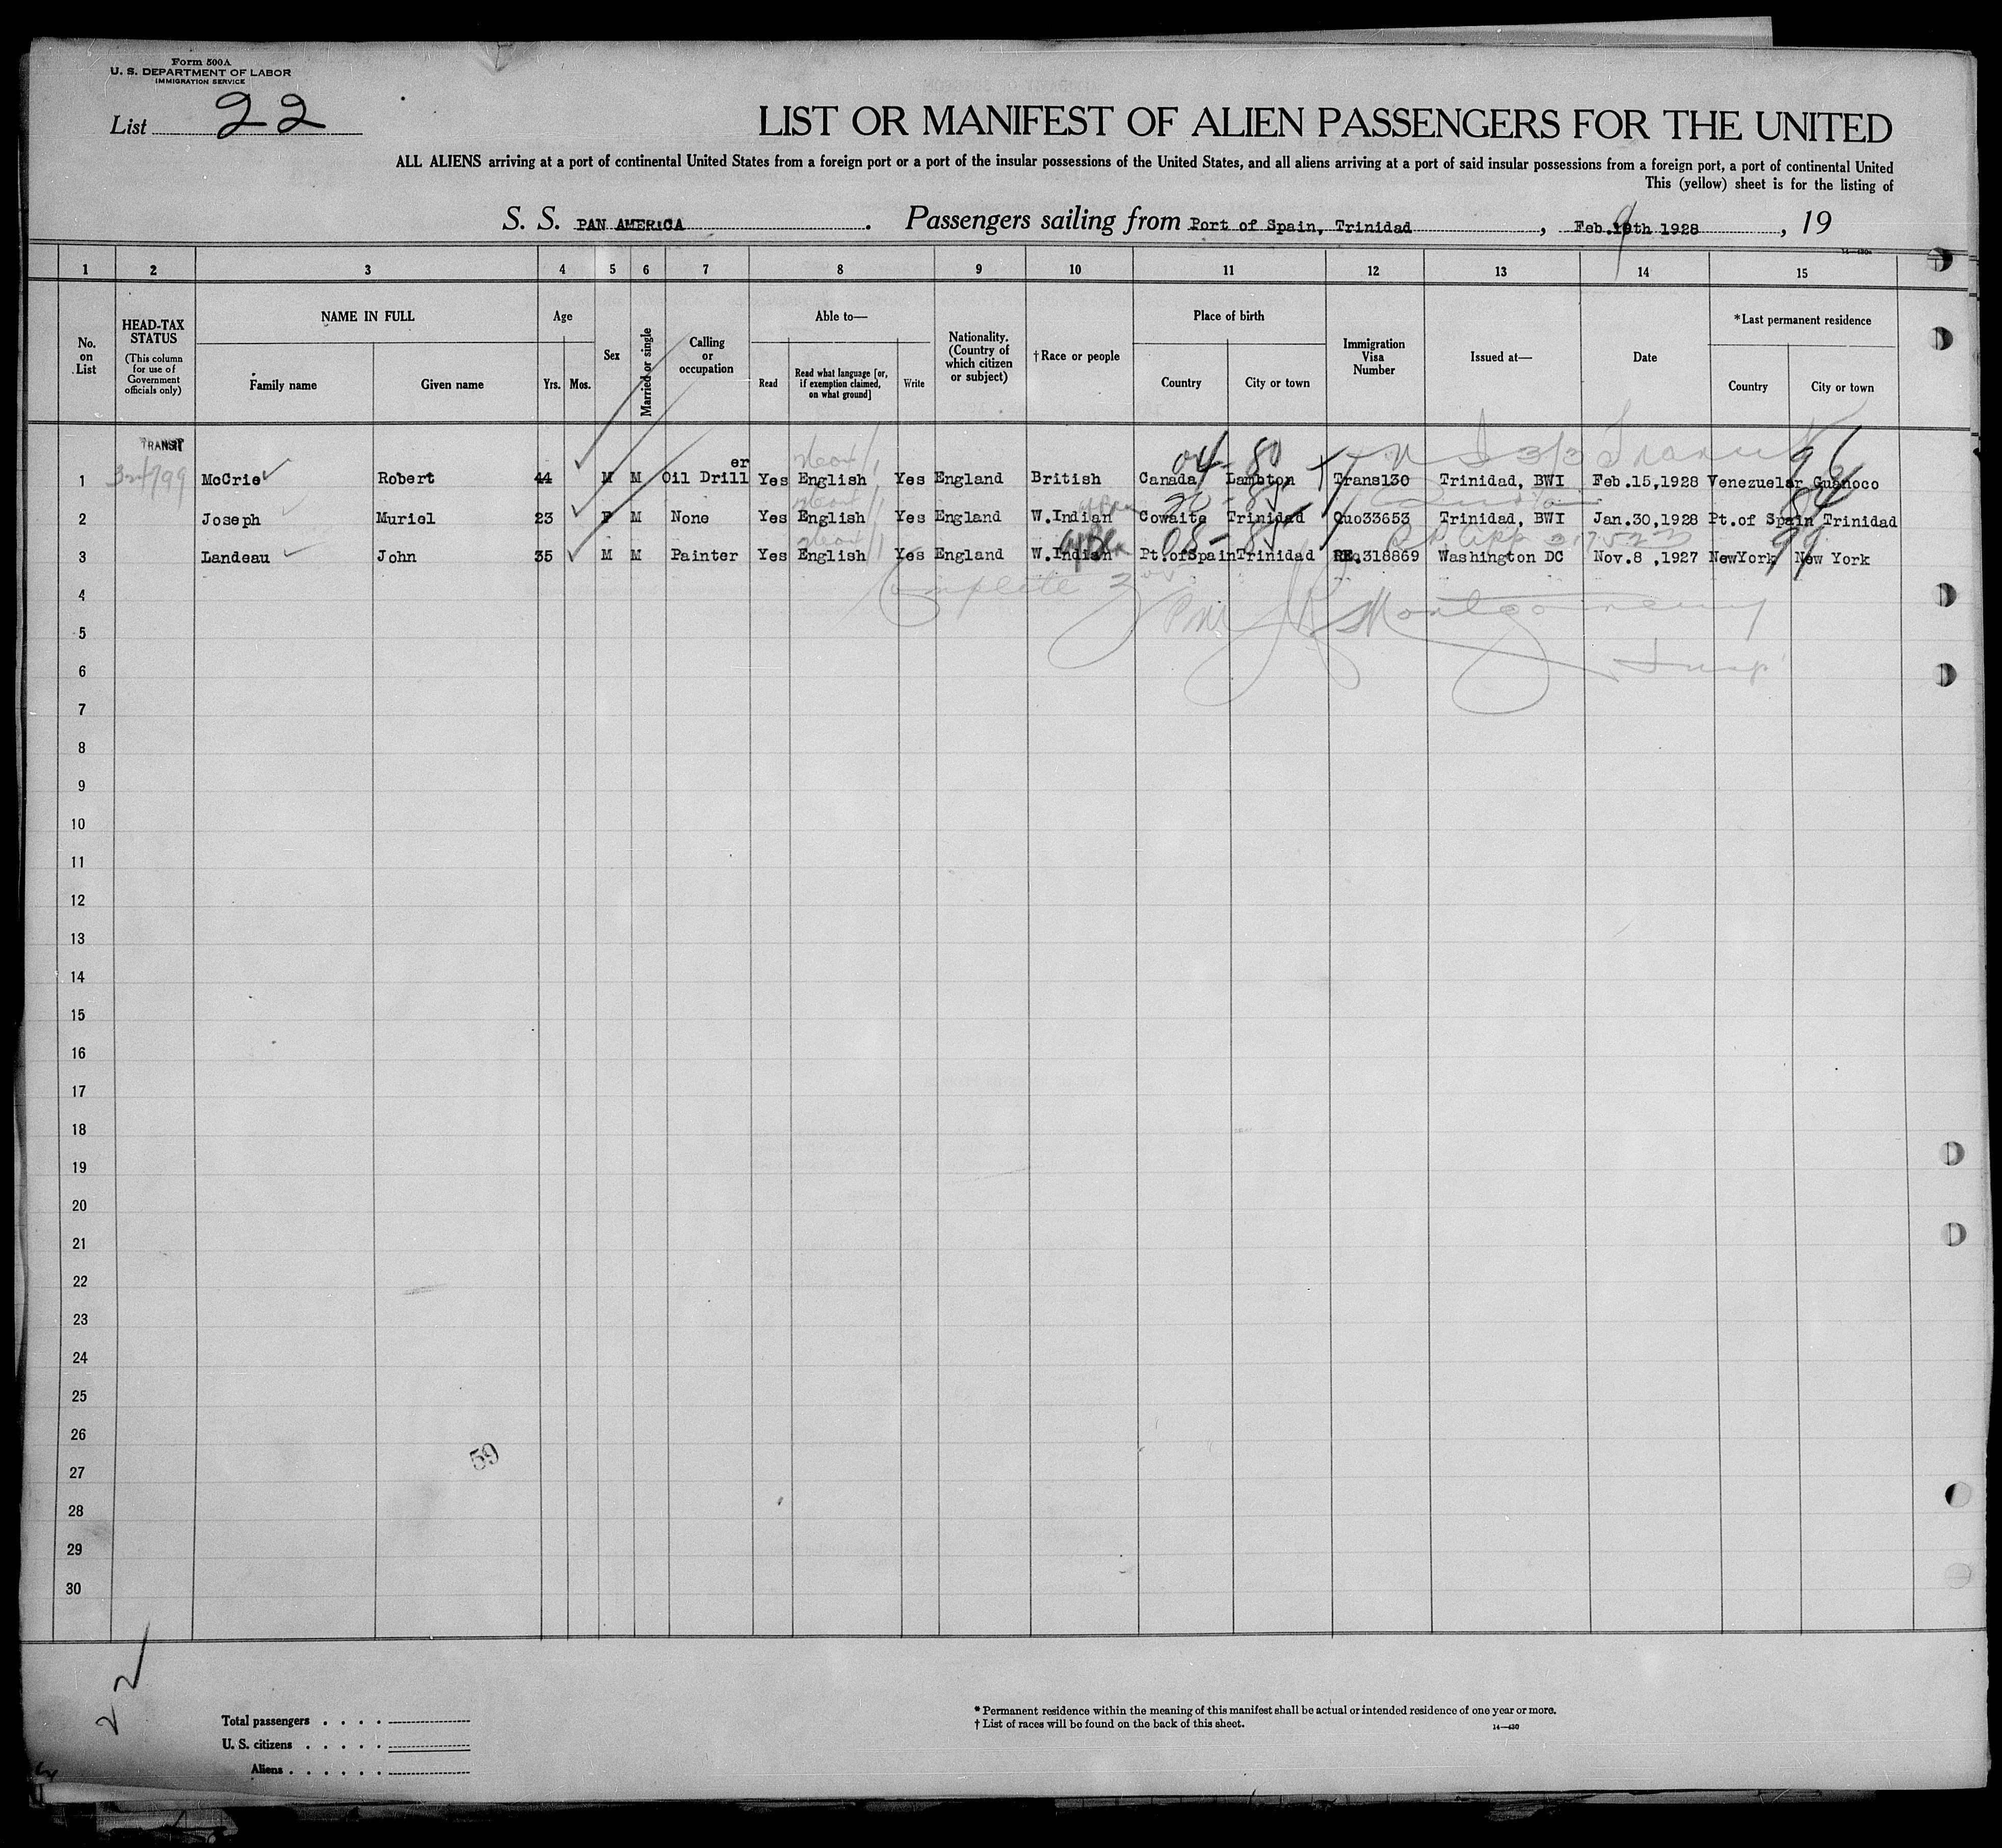 Form 500A
U. S. DEPARTMENT OF LABOR
IMMIGRATION SERVICE
List 22
LIST OR MANIFEST OF ALIEN PASSENGERS FOR THE UNITED
ALL ALIENS arriving at a port of continental United States from a foreign port or a port of the insular possessions of the United States, and all aliens arriving at a port of said insular possessions from a foreign port, a port of continental United
This (yellow) sheet is for the listing of
S. S. PAN AMERICA. Passengers sailing from Port of Spain, Trinidad, Feb.19th 1928, 19
14-430a
1 2 3 4 5 6 7 8 9 10 11 12 13 14 15
No. on List
HEAD-TAX STATUS
(This column for use of Government officials only)
NAME IN FULL
Family name Given name
Age
Yrs. Mos.
Sex
Married or single
Calling or occupation
Able to—
Read
Read what language [or, if exemption claimed, on what ground]
Write
Nationality. (Country of which citizen or subject)
†Race or people
Place of birth
Country City or town
Immigration Visa Number
Issued at—
Date
*Last permanent residence
Country City or town
TRANSIT
1 McCrie Robert 44 M M Oil Driller Yes English Yes England British Canada Lambton Trans130 Trinidad, BWI Feb.15,1928 Venezuela Guanoco
04-80 96
2 Joseph Muriel 23 F M None Yes English Yes England W.Indian Cowaite Trinidad Quo33653 Trinidad, BWI Jan.30,1928 Pt.of Spain Trinidad
3 Landeau John 35 M M Painter Yes English Yes England W.Indian Pt.ofSpain Trinidad RE.318869 Washington DC Nov.8 ,1927 NewYork New York
99
Complete
Montgomery
Insp
4
5
6
7
8
9
10
11
12
13
14
15
16
17
18
19
20
21
22
23
24
25
26
59
27
28
29
30
22
Total passengers
U. S. citizens
Aliens
* Permanent residence within the meaning of this manifest shall be actual or intended residence of one year or more.
† List of races will be found on the back of this sheet.
14-430